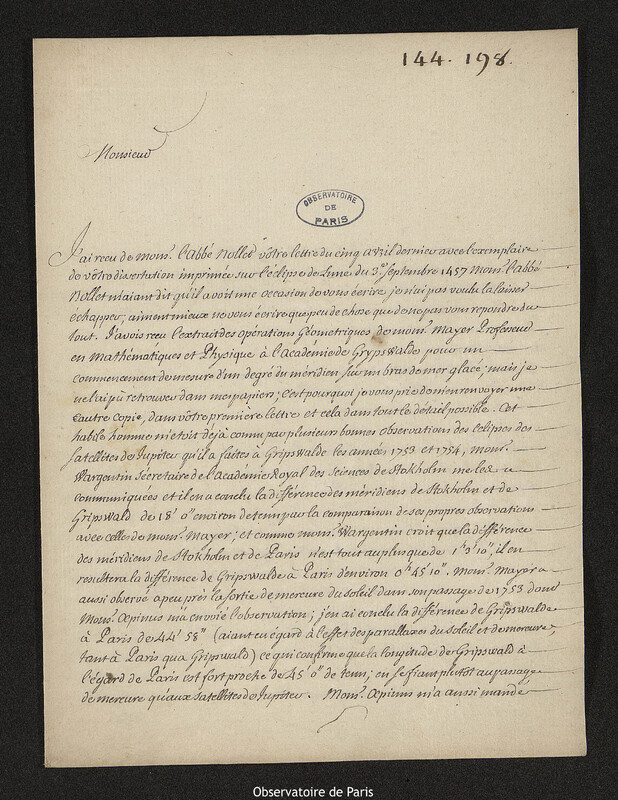 144. 198.
Monsieur
OBSERVATOIRE
DE
PARIS
J'ai recu de mons.r l'abbé Nollet vôtre lettre du cinq avril dernier avec l'exemplaire
de vôtre dissertation imprimée sur l'éclipse de Lune du 3.e septembre 1457 mons.r l'abbé
Nollet m'aiant dit qu'il avoit une occasion de vous écrire je n'ai pas voulu la laisser
échapper, aiment mieux ne vous écrire que peu de chose que de ne pas vous repondre du
tout. J'avois recu l'extrait des opérations Géometriques de mons.r Mayer Professeur
en Mathématiques et Physique à l'académie de Grypswalde pour un
commencement de mesure d'un degré du méridien sur un bras de mer glacé; mais je
ne l'ai pû retrouver dans mes papiers; c'est pourquoi je vous prie de m'en renvoyer une
autre copie, dans vôtre première lettre et cela dans tout le détail possible. Cet
habile homme m'etoit déjà connu par plusieurs bonnes observations des eclipses des
satellites de Jupiter qu'il a faites à Gripswalde les années 1753 et 1754, mons.r
Wargentin sécretaire de l'Académie Royal des sciences de Stokholm me les a
communiquées et il en a conclu la différence des méridiens de Stokholm et de
Gripswald de 18' 0" environ de tems par la comparaison de ses propres observations
avec celles de mons.r Mayer; et comme mons.r Wargentin croit que la différence
des méridiens de Stokholm et de Paris n'est tout au plus que de 1h 3' 10", il en
resultera la différence de Gripswalde à Paris d'environ 0h 45' 10". Mons.r Mayer a
aussi observé a peu près la sortie de mercure du soleil dans son passage de 1753 dont
Mons.r Æpinus m'a envoié l'observation; j'en ai conclu la différence de Gripswalde
à Paris de 44' 58" (aiant eu égard à l'effet des parallaxes du soleil et de mercure,
tant à Paris qu'a Gripswald) ce qui confirme que la longitude de Gripswald à
l'égard de Paris est fort proche de 45' 0" de tems; en se fiant plutôt au passage
de mercure qu'aux satellites de Jupiter. Mons.r Æpinus m'a aussi mandé
Observatoire de Paris